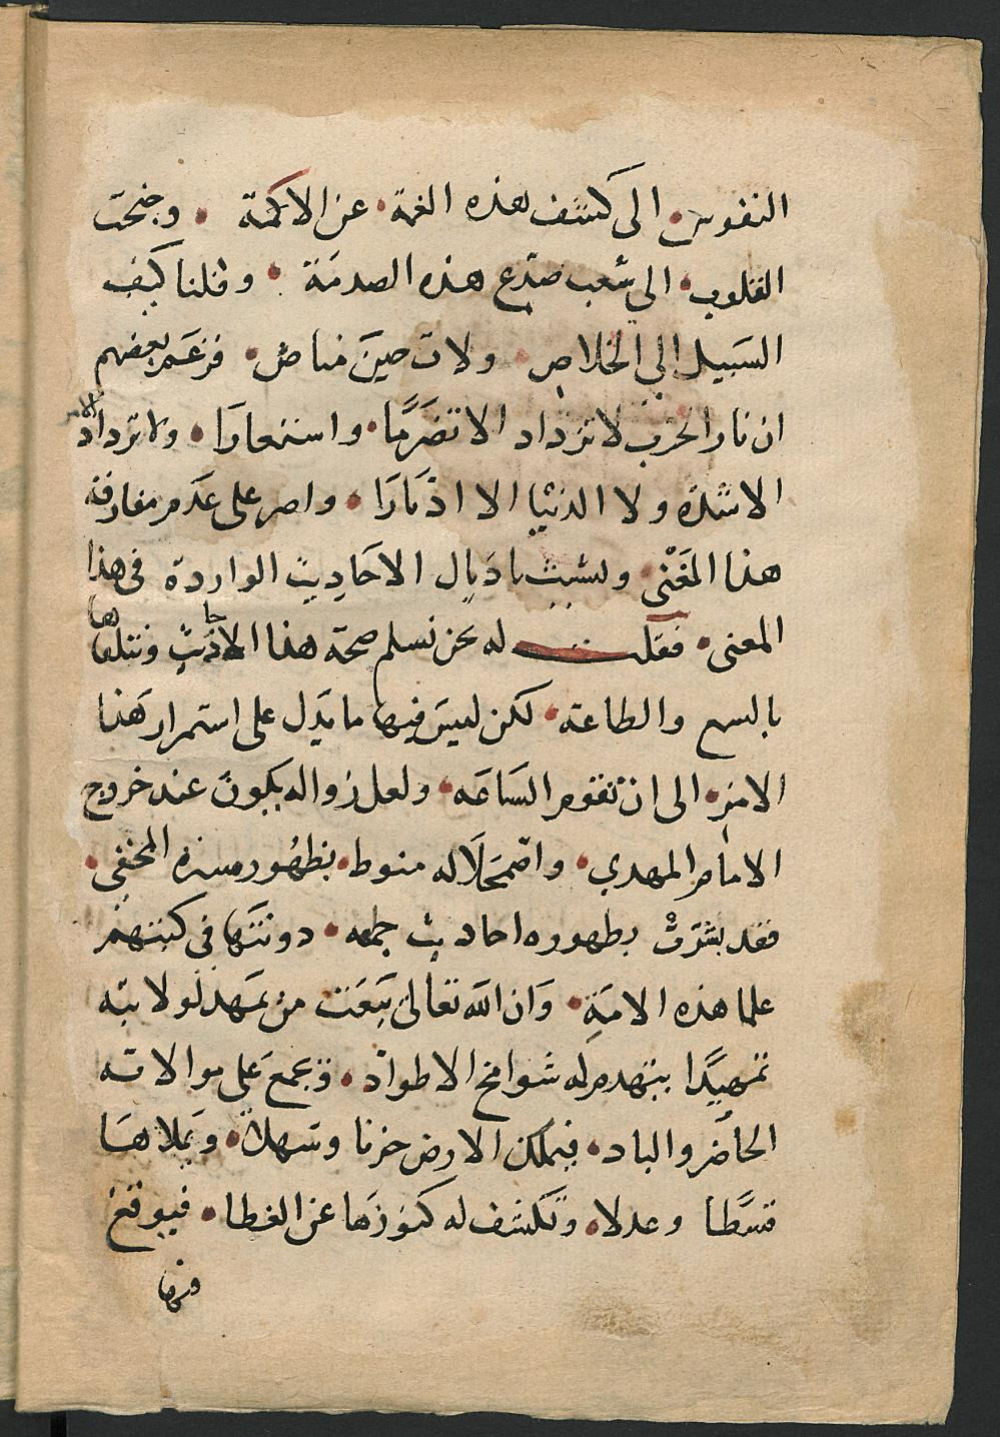 النفوس الى كشف هذه الغمة عن الاكمة وجنحت
القلوب الى شعب صدع هذه الصدمة وقلنا كيف
السبيل الى الخلاص ولات حين مناص فزعم بعضهم
ان نار الحرب لا تزداد الا تضرما واستعارا ولا تزداد الامر
الا شدة ولا الدنيا الا ادبارا واصر على عدم مفارقة
هذا المغنى وتشبث باذيال الاحاديث الواردة فى هذا
المعنى فقلت له نحن نسلم صحة هذا الاحاديث ونتلقاها
بالسمع والطاعة لكن ليس فيها ما يدل على استمرار هذا
الامر الى ان تقوم الساعه ولعل زواله يكون عند خروج
الامام المهدي واضمحلاله منوط بظهور سره المخفي
فقد بشرت بظهوره احاديث جمه دونتها فى كتبهم
علما هذه الامة وان الله تعالى يبعث من يمهد لولايته
تمهيدا ينهدم له شوامخ الاطواد ويجمع على موالاته
الحاضر والباد فيملك الارض حزنا وسهلا ويملاها
قسطا وعدلا وتكشف له كنوزها عن الغطا فيوقع
فيها